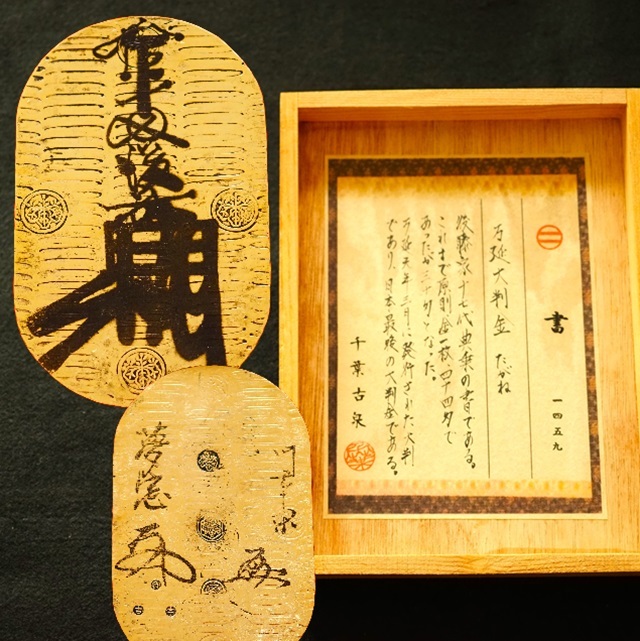 拾両後藤
書 一四五九
万延大判金 たがね
後藤家十七代典乗の書である。
これまで原則金一枚四十四匁で
あったが三十匁となった。
万延元年三月に発行された大判
であり、日本最後の大判金である。
千葉古泉